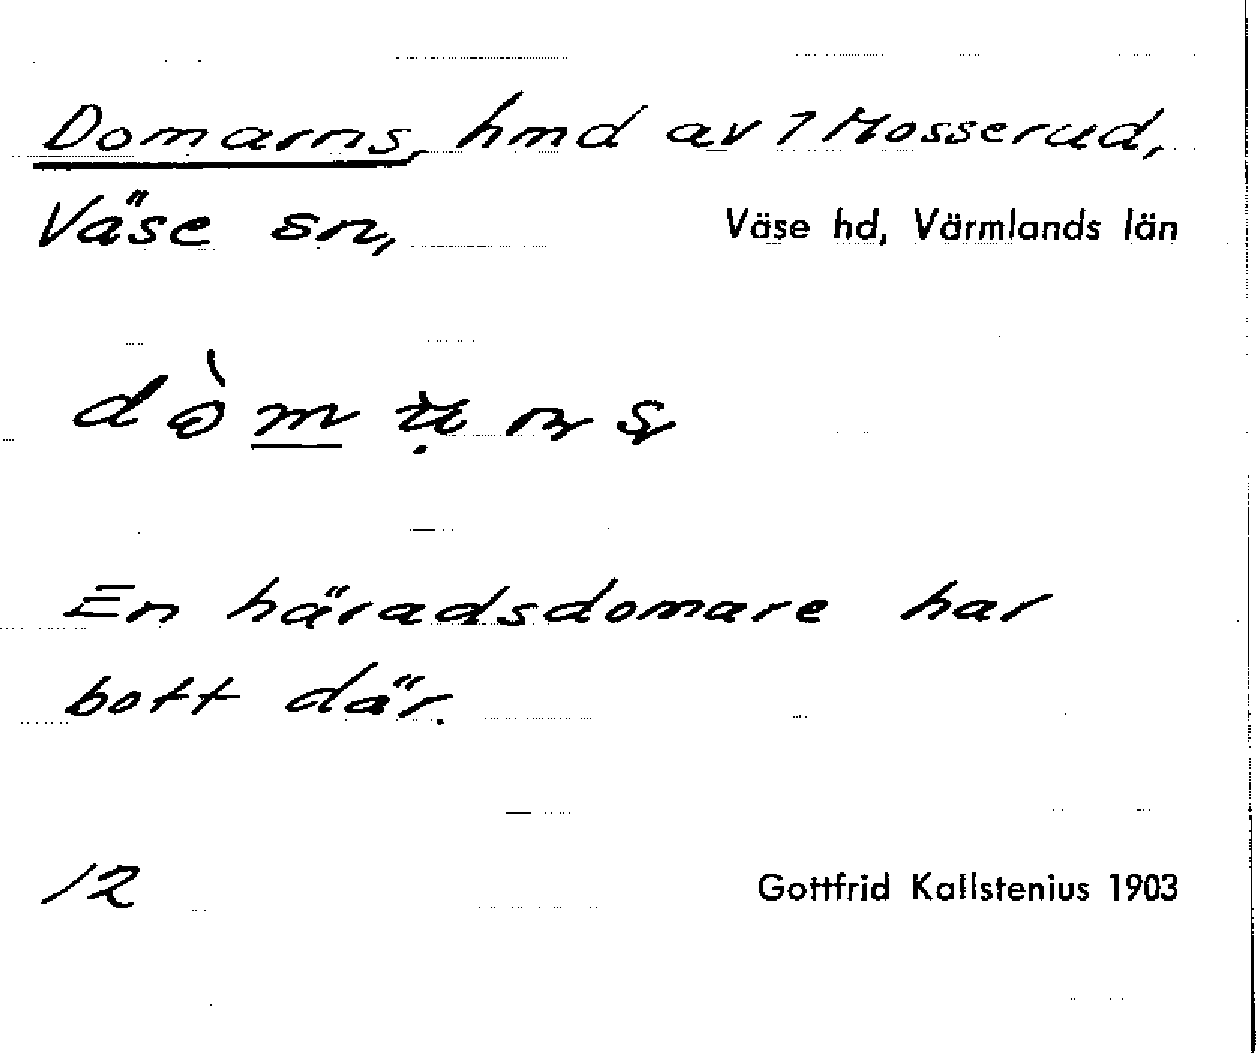 Domarns, hmd av 7 Mosserud,
Väse sn, Väse hd, Värmlands län
En häradsdomare har
bott där.
12 Gottfrid Kallstenius 1903